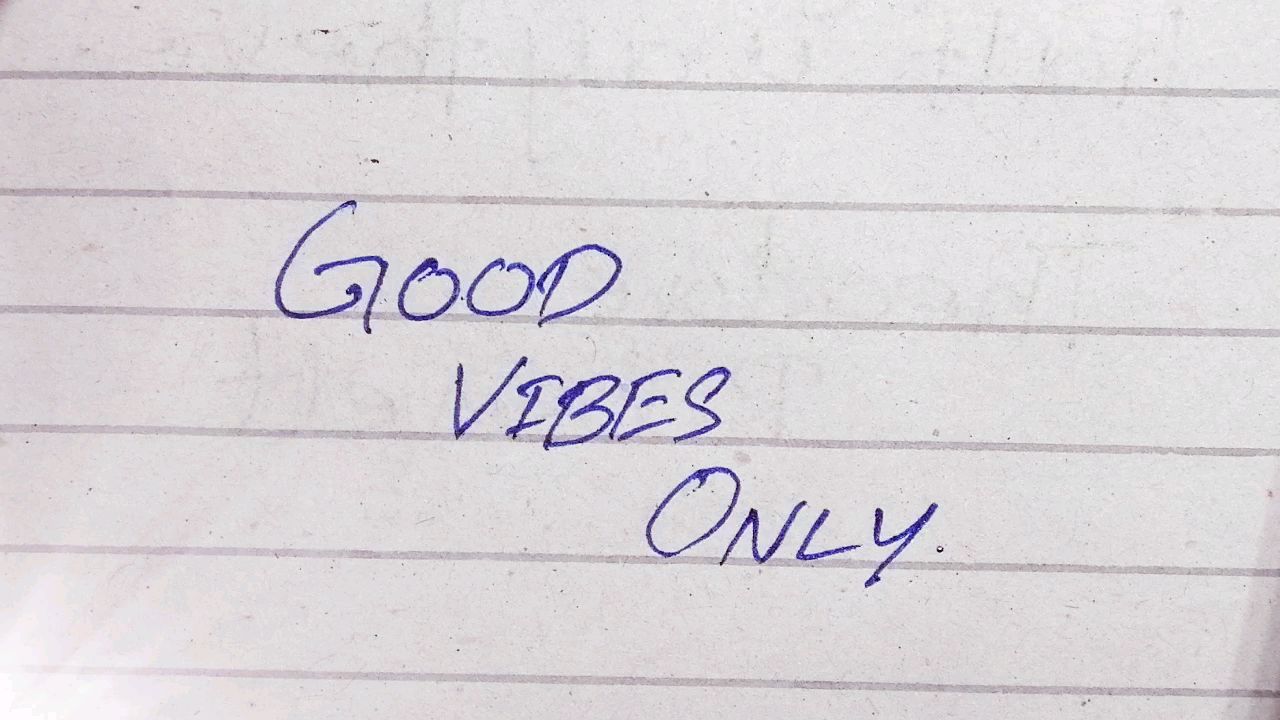 GOOD
VIBES
ONLY.